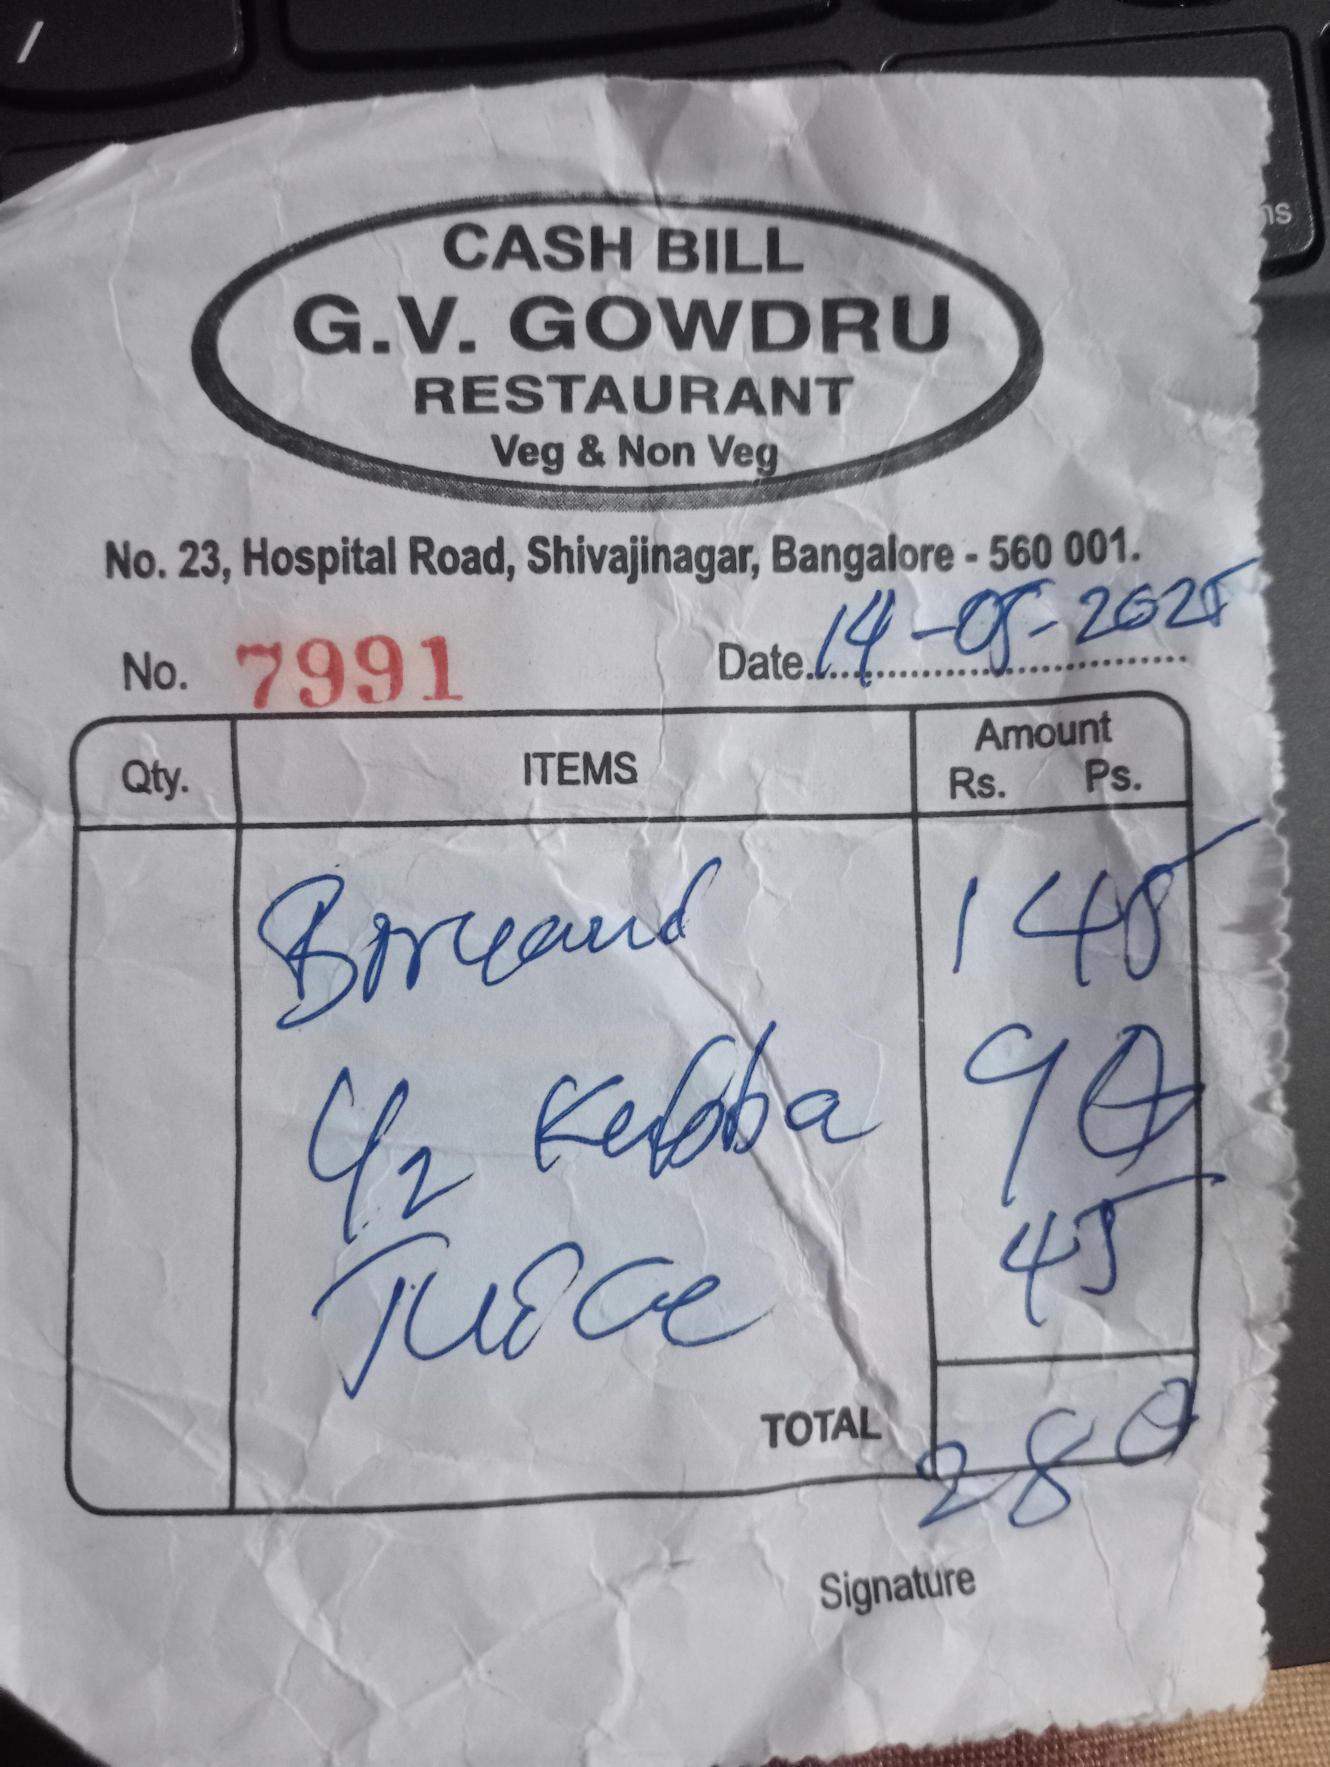 CASH BILL
G.V. GOWDRU
RESTAURANT
Veg & Non Veg
No. 23, Hospital Road, Shivajinagar, Bangalore - 560 001.
No. 7991 Date 14-05-2025
Qty. ITEMS Amount
Rs. Ps.
145
1/2 Kabba 90
Juice 45
TOTAL 280
Signature